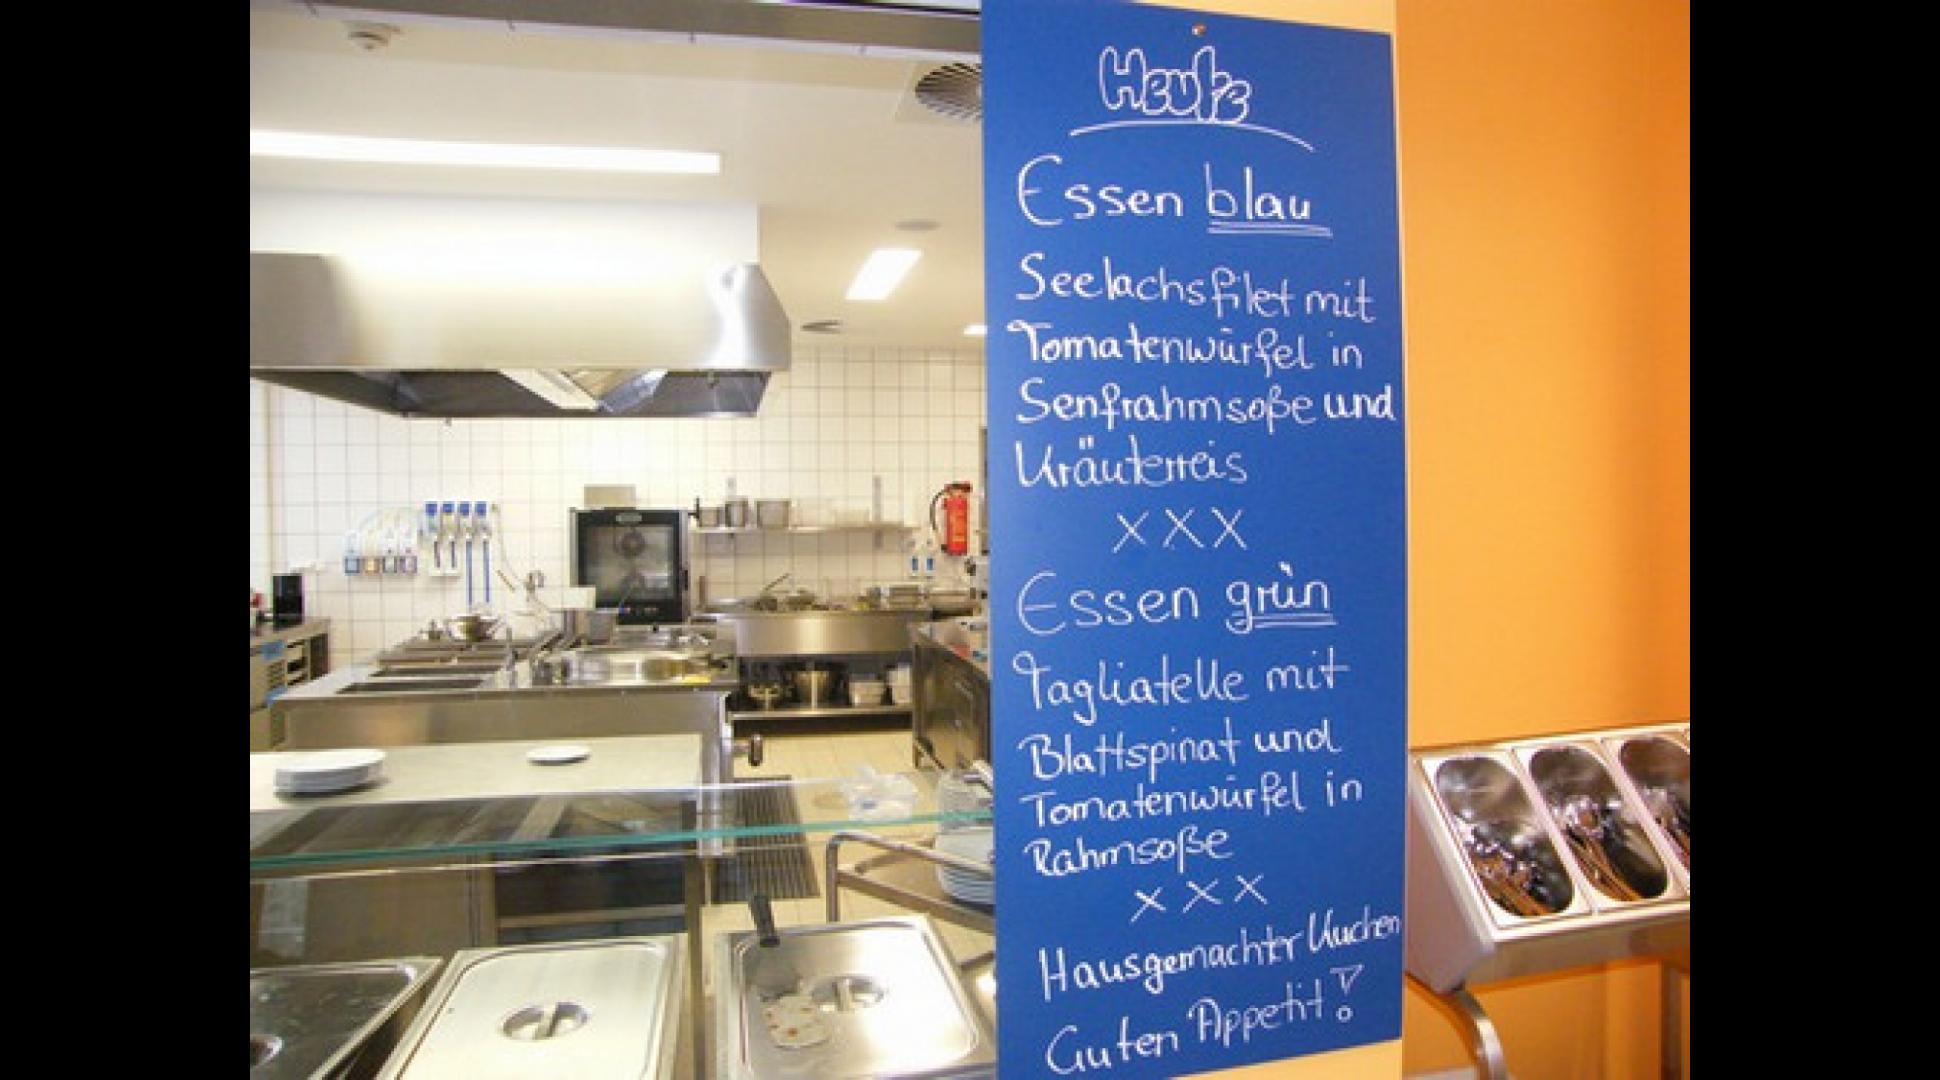 Heute
Essen blau
Seelachsfilet mit
Tomatenwürfel in
Senfrahmsoße und
Kräuterreis
XXX
Essen grün
Tagliatelle mit
Blattspinat und
Tomatenwürfel in
Rahmsoße
XXX
Hausgemachter Kuchen
Guten Appetit!